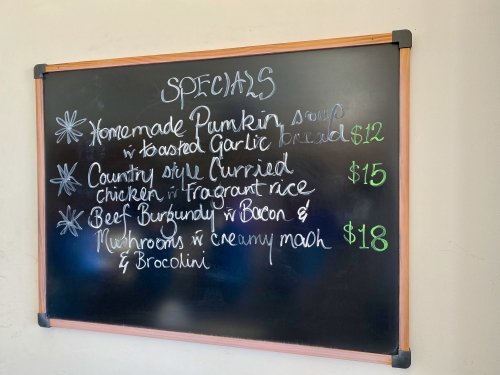 SPECIALS
Homemade Pumkin soup
w toasted Garlic bread $12
Country style Curried $15
chicken w fragrant rice
Beef Burgundy w Bacon &
Mushrooms w creamy mash $18
& Brocolini